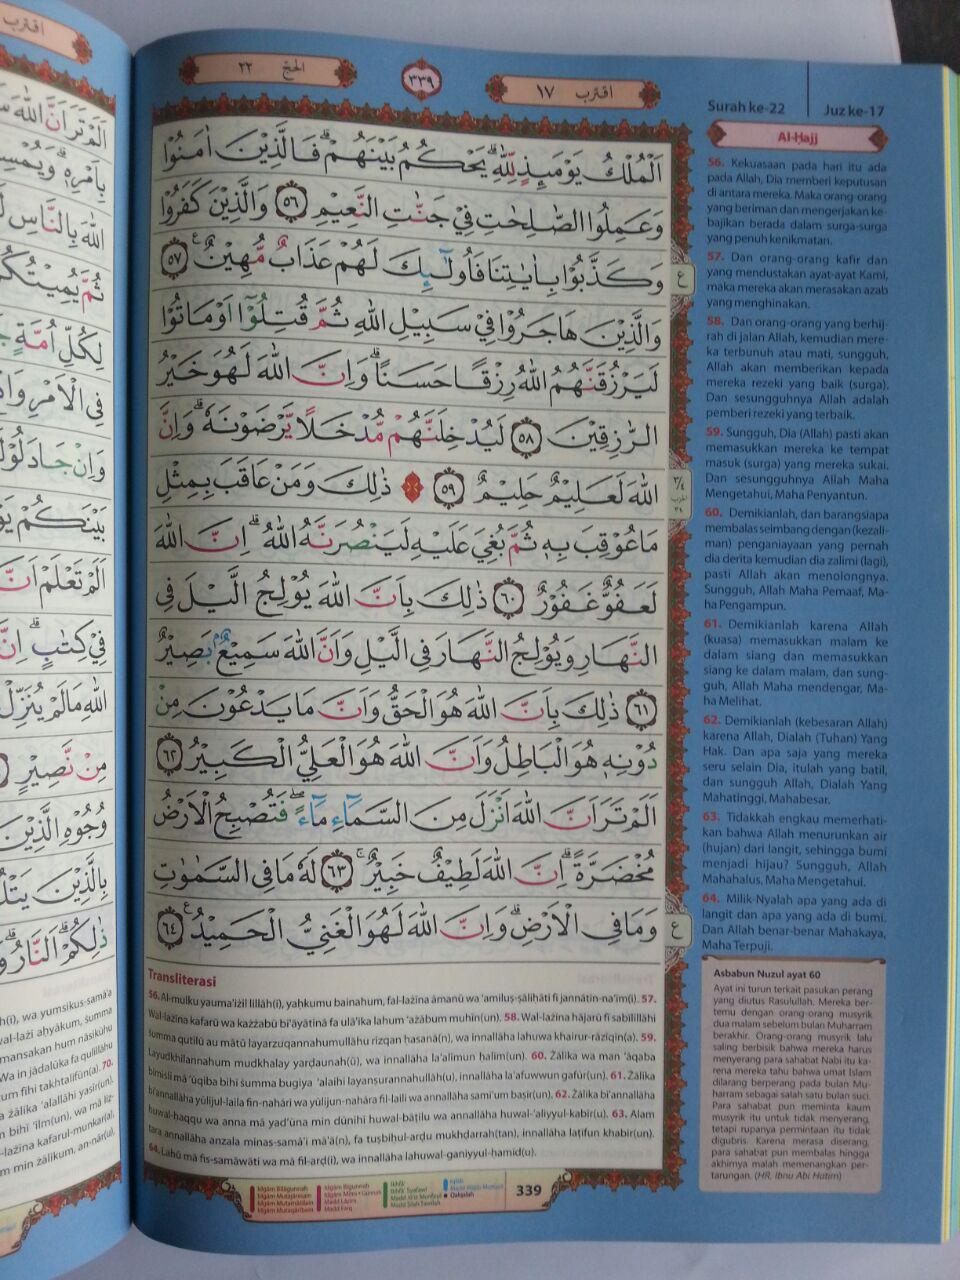 الحجّ ٢٢
٣٣٩
اقترب ١٧
Surah ke-22
Juz ke-17
Al-Ḥajj
اَلْمُلْكُ يَوْمَىِٕذٍ لِّلّٰهِ ۗيَحْكُمُ بَيْنَهُمْ ۗفَالَّذِيْنَ اٰمَنُوْا
وَعَمِلُوا الصّٰلِحٰتِ فِيْ جَنّٰتِ النَّعِيْمِ ٥٦ وَالَّذِيْنَ كَفَرُوْا
وَكَذَّبُوْا بِاٰيٰتِنَا فَاُولٰۤىِٕكَ لَهُمْ عَذَابٌ مُّهِيْنٌ ࣖ ٥٧
وَالَّذِيْنَ هَاجَرُوْا فِيْ سَبِيْلِ اللّٰهِ ثُمَّ قُتِلُوْٓا اَوْ مَاتُوْا
لَيَرْزُقَنَّهُمُ اللّٰهُ رِزْقًا حَسَنًا ۗوَاِنَّ اللّٰهَ لَهُوَ خَيْرُ
الرّٰزِقِيْنَ ٥٨ لَيُدْخِلَنَّهُمْ مُّدْخَلًا يَّرْضَوْنَهٗ ۗوَاِنَّ
اللّٰهَ لَعَلِيْمٌ حَلِيْمٌ ٥٩ ذٰلِكَ وَمَنْ عَاقَبَ بِمِثْلِ
مَا عُوْقِبَ بِهٖ ثُمَّ بُغِيَ عَلَيْهِ لَيَنْصُرَنَّهُ اللّٰهُ ۗاِنَّ اللّٰهَ
لَعَفُوٌّ غَفُوْرٌ ٦٠ ذٰلِكَ بِاَنَّ اللّٰهَ يُوْلِجُ الَّيْلَ فِى
النَّهَارِ وَيُوْلِجُ النَّهَارَ فِى الَّيْلِ وَاَنَّ اللّٰهَ سَمِيْعٌۢ بَصِيْرٌ
٦١ ذٰلِكَ بِاَنَّ اللّٰهَ هُوَ الْحَقُّ وَاَنَّ مَا يَدْعُوْنَ مِنْ
دُوْنِهٖ هُوَ الْبَاطِلُ وَاَنَّ اللّٰهَ هُوَ الْعَلِيُّ الْكَبِيْرُ ٦٢
اَلَمْ تَرَ اَنَّ اللّٰهَ اَنْزَلَ مِنَ السَّمَاۤءِ مَاۤءً ۖفَتُصْبِحُ الْاَرْضُ
مُخْضَرَّةً ۗاِنَّ اللّٰهَ لَطِيْفٌ خَبِيْرٌ ۚ ٦٣ لَهٗ مَا فِى السَّمٰوٰتِ
وَمَا فِى الْاَرْضِ ۗوَاِنَّ اللّٰهَ لَهُوَ الْغَنِيُّ الْحَمِيْدُ ࣖ ٦٤
Transliterasi
56. Al-mulku yauma'iżil lillāh(i), yaḥkumu bainahum, fal-lażīna āmanū wa 'amiluṣ-ṣāliḥāti fī jannātin-na'īm(i). 57.
Wal-lażīna kafarū wa każżabū bi'āyātinā fa ulā'ika lahum 'ażābum muhīn(un). 58. Wal-lażīna hājarū fī sabīlillāhi
ṡumma qutilū au mātū layarzuqannahumullāhu rizqan ḥasanā(n), wa innallāha lahuwa khairur-rāziqīn(a). 59.
Layudkhilannahum mudkhalay yarḍaunah(ū), wa innallāha la'alīmun ḥalīm(un). 60. Żālika wa man 'āqaba
bimiṡli mā 'ūqiba bihī ṡumma bugiya 'alaihi layanṣurannahullāh(u), innallāha la'afuwwun gafūr(un). 61. Żālika
bi'annallāha yūlijul-laila fin-nahāri wa yūlijun-nahāra fil-laili wa annallāha samī'um baṣīr(un). 62. Żālika bi'annallāha
huwal-ḥaqqu wa anna mā yad'ūna min dūnihī huwal-bāṭilu wa annallāha huwal-'aliyyul-kabīr(u). 63. Alam
tara annallāha anzala minas-samā'i mā'ā(n), fa tuṣbiḥul-arḍu mukhḍarrah(tan), innallāha laṭīfun khabīr(un).
64. Lahū mā fis-samāwāti wa mā fil-arḍ(i), wa innallāha lahuwal-ganiyyul-ḥamīd(u).
339
56. Kekuasaan pada hari itu ada
pada Allah, Dia memberi keputusan
di antara mereka. Maka orang-orang
yang beriman dan mengerjakan ke-
bajikan berada dalam surga-surga
yang penuh kenikmatan.
57. Dan orang-orang kafir dan
yang mendustakan ayat-ayat Kami,
maka mereka akan merasakan azab
yang menghinakan.
58. Dan orang-orang yang berhij-
rah di jalan Allah, kemudian mere-
ka terbunuh atau mati, sungguh,
Allah akan memberikan kepada
mereka rezeki yang baik (surga).
Dan sesungguhnya Allah adalah
pemberi rezeki yang terbaik.
59. Sungguh, Dia (Allah) pasti akan
memasukkan mereka ke tempat
masuk (surga) yang mereka sukai.
Dan sesungguhnya Allah Maha
Mengetahui, Maha Penyantun.
60. Demikianlah, dan barangsiapa
membalas seimbang dengan (kezali-
man) penganiayaan yang pernah
dia derita kemudian dia zalimi (lagi),
pasti Allah akan menolongnya.
Sungguh, Allah Maha Pemaaf, Ma-
ha Pengampun.
61. Demikianlah karena Allah
(kuasa) memasukkan malam ke
dalam siang dan memasukkan
siang ke dalam malam, dan sung-
guh, Allah Maha mendengar, Ma-
ha Melihat.
62. Demikianlah (kebesaran Allah)
karena Allah, Dialah (Tuhan) Yang
Hak. Dan apa saja yang mereka
seru selain Dia, itulah yang batil,
dan sungguh Allah, Dialah Yang
Mahatinggi, Mahabesar.
63. Tidakkah engkau memerhati-
kan bahwa Allah menurunkan air
(hujan) dari langit, sehingga bumi
menjadi hijau? Sungguh, Allah
Mahahalus, Maha Mengetahui.
64. Milik-Nyalah apa yang ada di
langit dan apa yang ada di bumi.
Dan Allah benar-benar Mahakaya,
Maha Terpuji.
Asbabun Nuzul ayat 60
Ayat ini turun terkait pasukan perang
yang diutus Rasulullah. Mereka ber-
temu dengan orang-orang musyrik
dua malam sebelum bulan Muharram
berakhir. Orang-orang musyrik lalu
saling berbisik bahwa mereka harus
menyerang para sahabat Nabi itu ka-
rena mereka tahu bahwa umat Islam
dilarang berperang pada bulan Mu-
harram sebagai salah satu bulan suci.
Para sahabat pun meminta kaum
musyrik itu untuk tidak menyerang,
tetapi rupanya permintaan itu tidak
digubris. Karena merasa diserang,
para sahabat pun membalas hingga
akhirnya malah memenangkan per-
tarungan. (HR. Ibnu Abi Hatim)